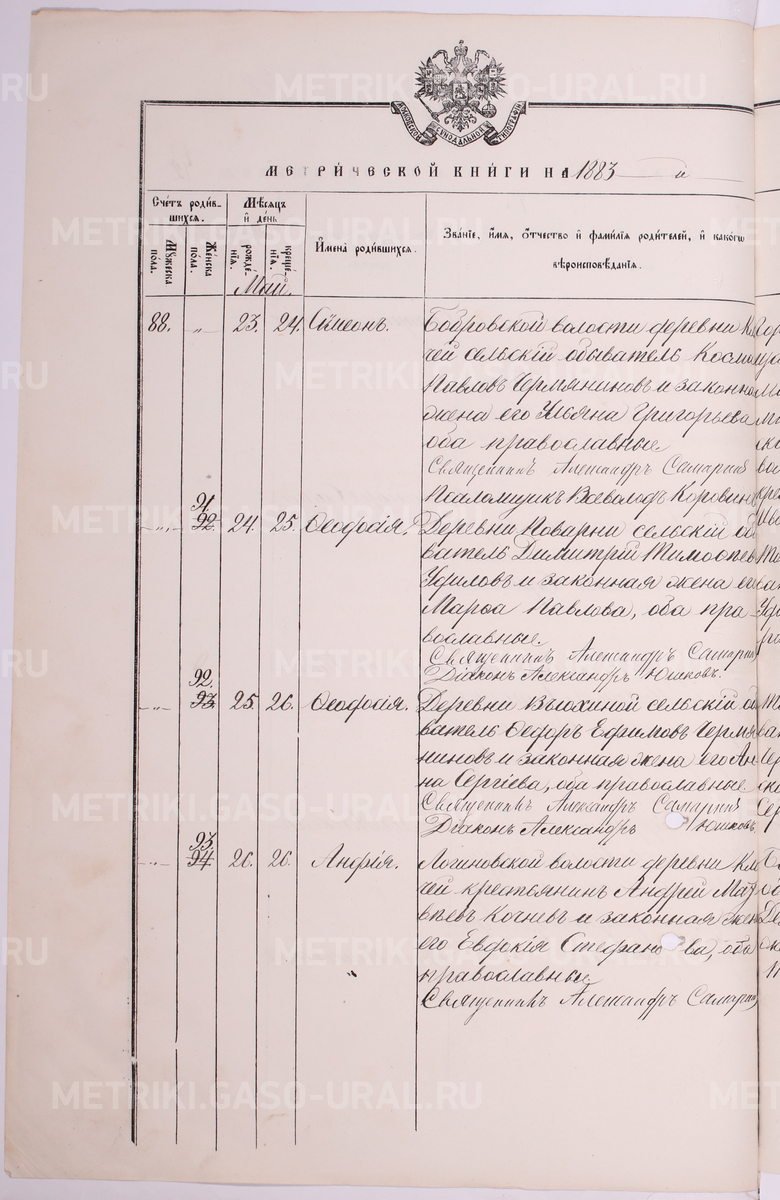 МОСКОВСКОЙ СѴНОДАЛЬНОЙ ТИПОГРАФІИ
МЕТРИЧЕСКОЙ КНИГИ НА 1883 й
Счетъ родив-
шихся.
Мѣсяцъ
и день
Имена родившихся.
Званіе, имя, отчество и фамилія родителей, и какого
вѣроисповѣданія.
Мужеска
пола.
Женска
пола.
рожде-
нія.
креще-
нія.
Май.
88. „ 23. 24. Сѵмеонъ. Бобровской волости деревни Клю
чей сельскій обыватель Косма
Павловъ Чермяниновъ и законна
жена его Ульяна Григорьева
оба православные
Священникъ Александръ Самарин
Псаломщикъ Всеволодъ Коровинъ
91
„ 92. 24. 25. Ѳеодосія. Деревни Поварни сельскій об
ватель Димитрій Тимоѳеев
Уфиловъ и законная жена ег
Марѳа Павлова, оба пра
вославные.
Священникъ Александръ Самарин
Діаконъ Александръ Юшковъ.
92.
„ 93. 25 26. Ѳеодосія. Деревни Вьюхиной сельскій об
ватель Ѳедоръ Ефимовъ Чермя
ниновъ и законная жена его Ан
на Сергіева, оба православные
Священникъ Александръ Самарин
Діаконъ Александръ Юшковъ
93.
„ 94 26. 26. Анфия. Логиновской волости деревни Клю
чей крестьянинъ Андрей Мат
вѣевъ Кочневъ и законная жен
его Евдокія Стефанова, оба
православные
Священникъ Александръ Самарин
METRIKI.GASO-URAL.RU